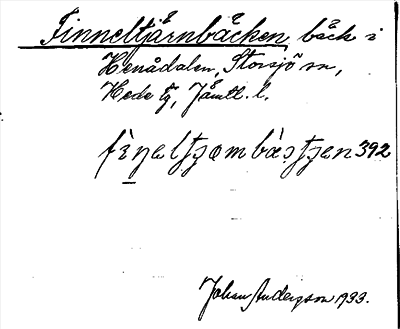 Finneltjärnbäcken, bäck i
Henådalen, Storsjö sn,
Hede tg, Jämtl. l.
392
Johan Anderson 1933.